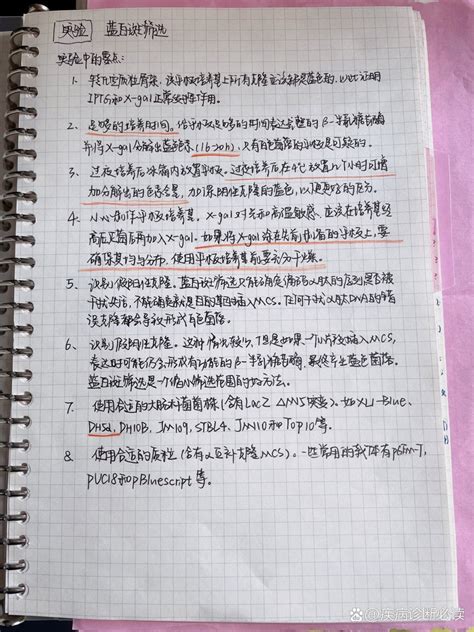 实验 蓝白斑筛选
实验中的要点：
1、转化空质粒骨架，该平板培养基上所有克隆应该都是蓝色的，以此证明
IPTG和X-gal正常发挥作用。
2、足够的培养时间。给平板足够的时间表达完整的β-半乳糖苷酶
并将X-gal分解生蓝色（16-20h），只有白色菌落的平板是可疑的。
3、过夜培养后冰箱内放置平板。过夜培养后在4℃放置几个小时可增
加分解出的色素含量，加深阳性克隆的蓝色，以便更好的区分。
4、小心制作平板培养基，X-gal对光和高温敏感、应该在培养基经
高压灭菌后再加入X-gal。如果将X-gal涂在先前制备的平板上，要
确保其均匀分布，使用平板培养基前要充分干燥。
5、识别假阳性克隆。蓝白斑筛选只能确定编码α肽的序列是否被
干扰决活，不能确定就是目的基因插入MCS。任何干扰α肽DNA的错
误克隆都会导致形成白色菌落。
6、识别假阴性克隆。这种情况较少，但是如果一个小片段插入MCS，
表达时可能仍会形成有功能的β-半乳糖苷酶，最终产生蓝色菌落。
蓝白斑筛选是一个缩小筛选范围的好方法。
7、使用合适的大肠杆菌菌株（含有LacZ ΔM15突变）。如XL1-Blue、
DH5α、DH10B、JM109、STBL4、JM110和Top10等。
8、使用合适的质粒（含有α互补克隆MCS）。一些常用的载体有pGEM-T、
PUC18和pBluescript等。
疾病诊断必读